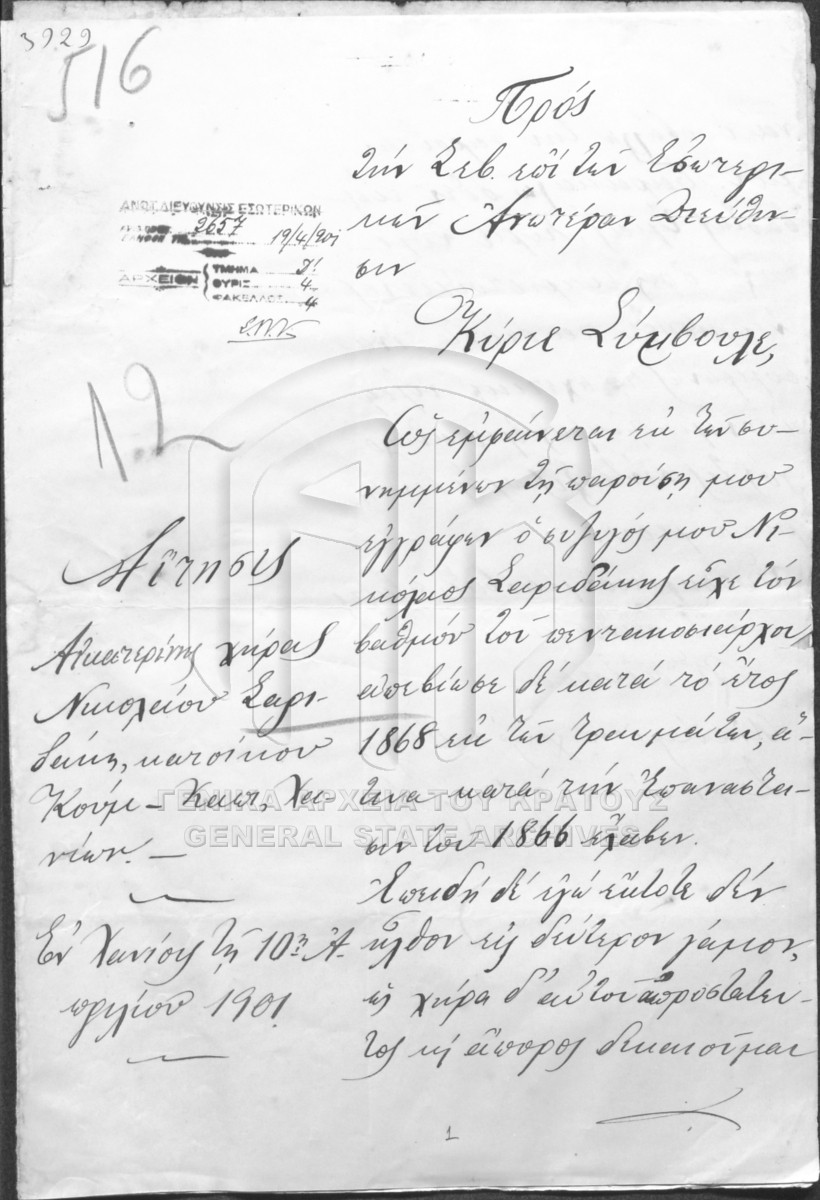 3929
516
Πρός
τὴν Σεβ. ἐπὶ τῶν Ἐσωτερι-
κῶν Ἀνωτέραν Διεύθυν-
σιν
ΑΝΩΤ. ΔΙΕΥΘΥΝΣΙΣ ΕΣΩΤΕΡΙΚΩΝ
2657
19/4/901
ΑΡΧΕΙΟΝ
ΤΜΗΜΑ Δ!
ΘΥΡΙΣ 4
ΦΑΚΕΛΛΟΣ 4
Κύριε Σύμβουλε,
12
Αἴτησις
Αἰκατερίνης χήρας
Νικολάου Σαρι-
δάκη, κατοίκου
Κούμ-Καπ, Χα-
νίων. —
Ἐν Χανίοις τῇ 10ῃ Ἀ-
πριλίου 1901
Ὡς ἐμφαίνεται ἐκ τῶν συ-
νημμένων τῇ παρούσῃ μου
ἐγγράφων ὁ συζυγός μου Νι-
κόλαος Σαριδάκης εἶχε τόν
βαθμόν τοῦ πεντακοσιάρχου
ἀπεβίωσε δέ κατά τό ἔτος
1868 ἐκ τῶν τραυμάτων, ἅ-
τινα κατά τήν Ἐπανάστα-
σιν του 1866 ἔλαβεν.
Ἐπειδή δέ ἐγώ ἔκτοτε δέν
ἦλθον εἰς δεύτερον γάμον,
ὡς χήρα δ' αὐτοῦ ἀπροστάτευ-
τος κ̀ ἄπορος δικαιοῦμαι
1
ΓΕΝΙΚΑ ΑΡΧΕΙΑ ΤΟΥ ΚΡΑΤΟΥΣ
GENERAL STATE ARCHIVES